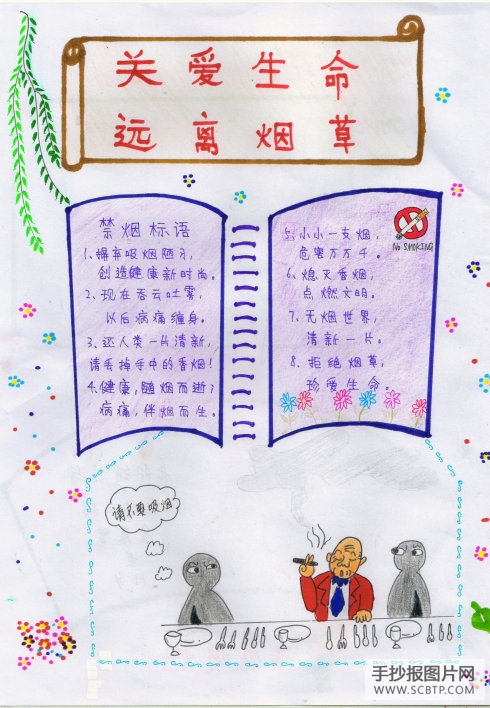 关爱生命
远离烟草
禁烟标语
1、摒弃吸烟陋习,
创造健康新时尚。
2、现在吞云吐雾,
以后病痛缠身。
3、还人类一片清新,
请丢掉手中的香烟!
4、健康,随烟而逝;
病痛,伴烟而生。
5、小小一支烟,
危害万万千。
6、熄灭香烟,
点燃文明。
7、无烟世界,
清新一片。
8、拒绝烟草,
珍爱生命。
NO SMOKING
请不要吸烟
手抄报图片网
WWW.SCBTP.COM